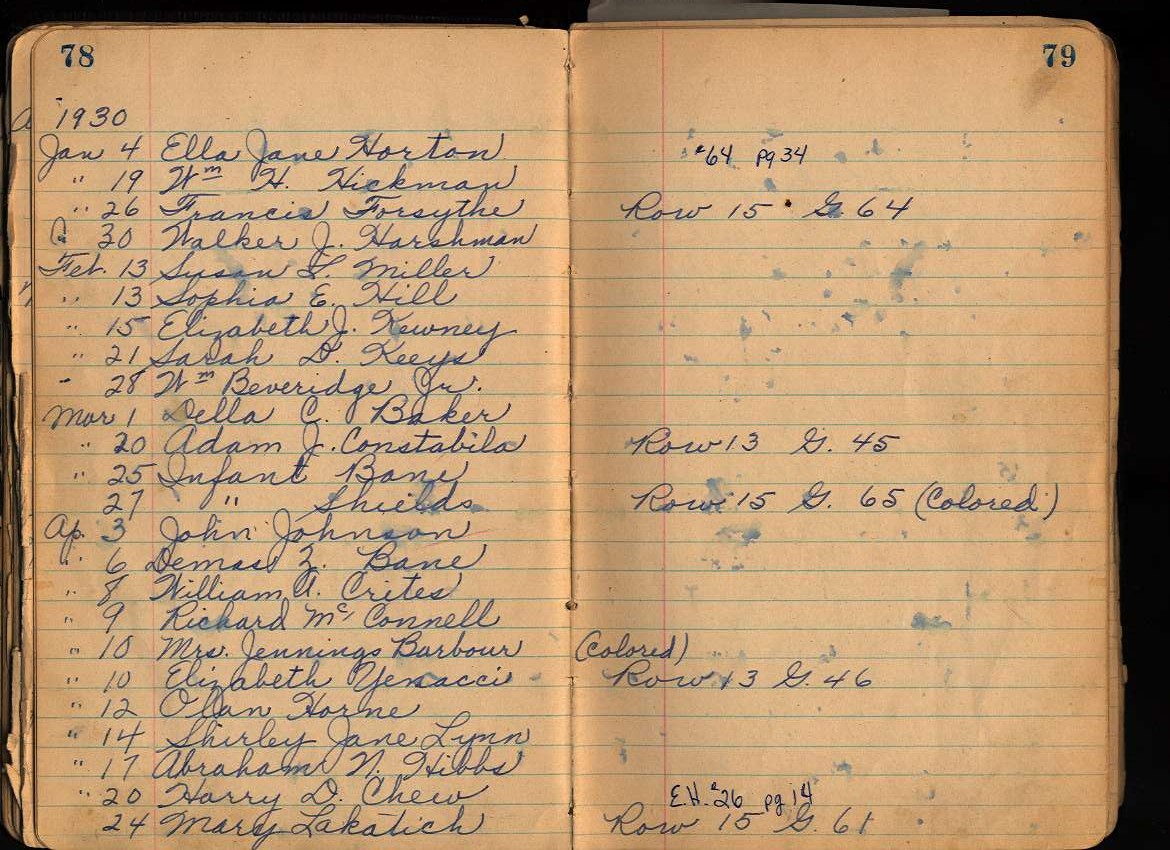 78
79
1930
Jan 4 Ella Jane Horton #64 pg 34
" 19 Wm H. Hickman
" 26 Francis Forsythe Row 15 G. 64
30 Walker J. Harshman
Feb. 13 Susan L. Miller
" 13 Sophia E. Hill
" 15 Elizabeth J. Kewney
" 21 Sarah D. Keeys
" 28 Wm Beveridge Jr.
Mar 1 Della C. Baker
" 20 Adam J. Constabila Row 13 G. 45
" 25 Infant Bane
27 " Shields Row 15 G. 65 (Colored)
Ap. 3 John Johnson
" 6 Demas Z. Bane
" 8 William A. Crites
" 9 Richard McConnell
" 10 Mrs. Jennings Barbour (Colored)
" 10 Elizabeth Yenacci Row 13 G. 46
" 12 Olan Horne
" 14 Shirley Jane Lynn
" 17 Abraham N. Hibbs
" 20 Harry D. Chew E.H. #26 pg 14
24 Mary Lakatich Row 15 G. 61